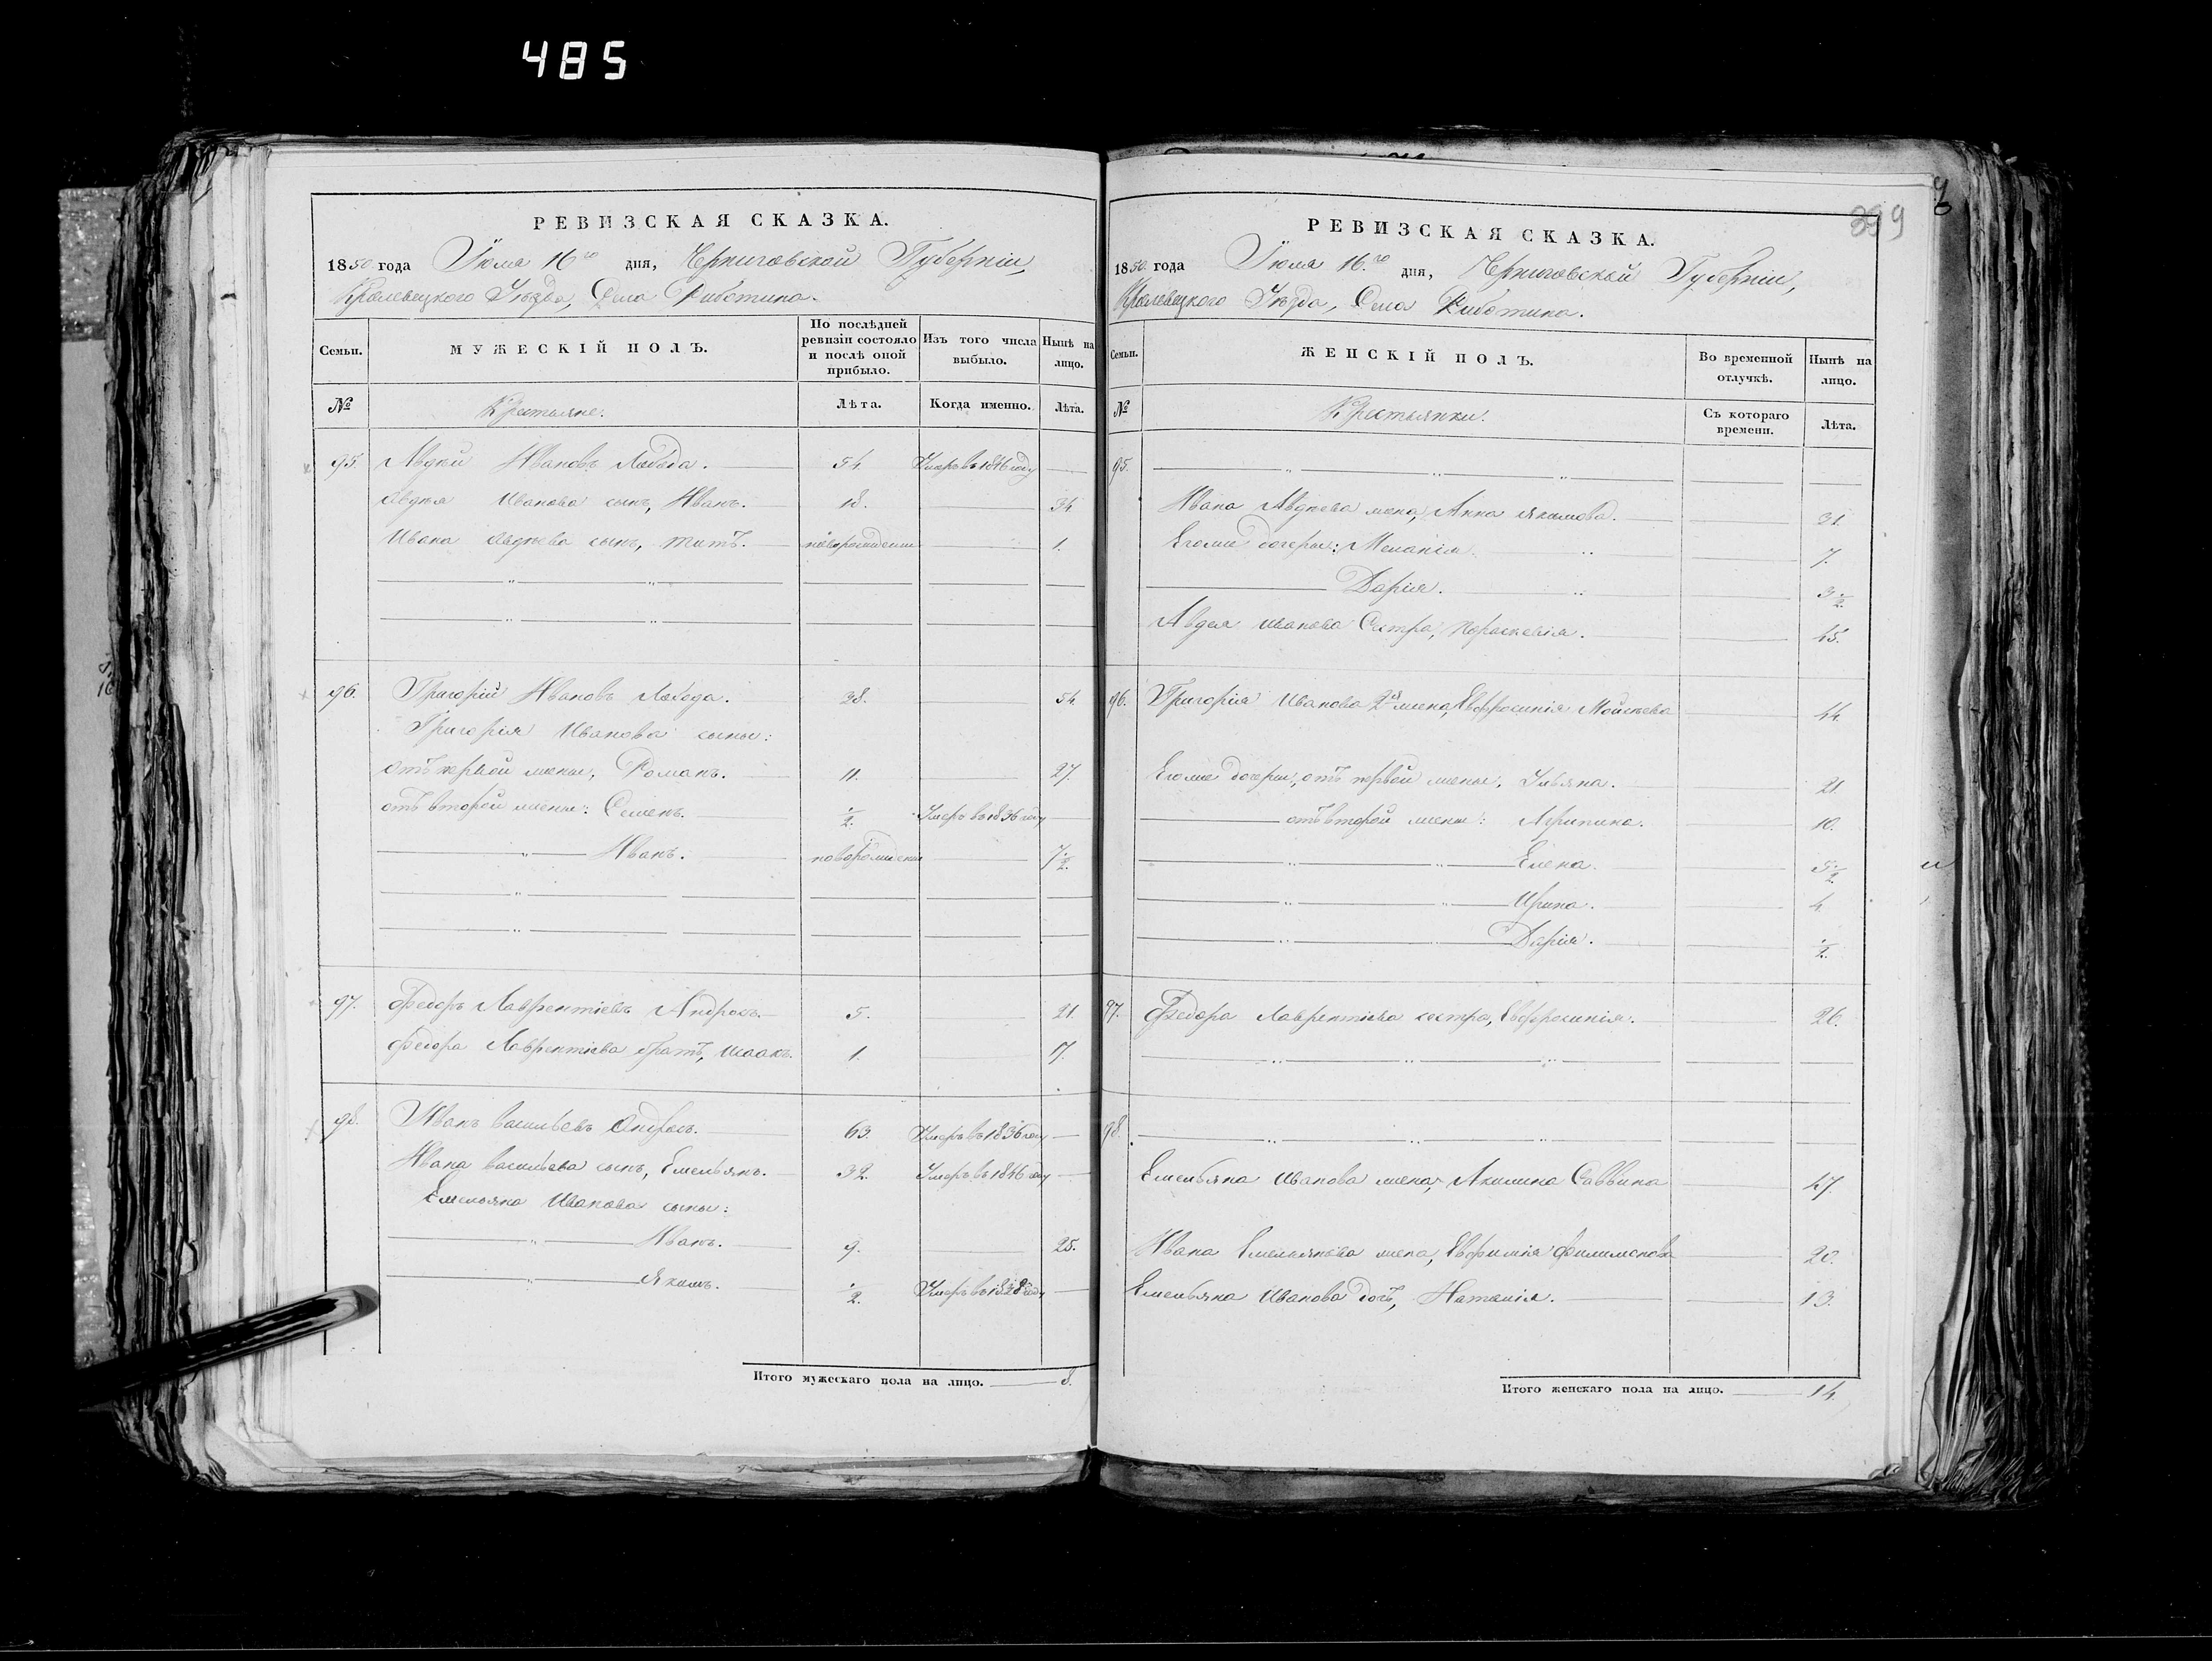 485
399
РЕВИЗСКАЯ СКАЗКА.
1850 года Іюля 16го дня, Черниговской Губерніи,
Кролевецкого Уѣзда, Села Риботина.
Семьи.
МУЖЕСКІЙ ПОЛЪ.
По послѣдней ревизіи состояло и послѣ оной прибыло.
Изъ того числа выбыло.
Нынѣ на лицо.
№
Крестьяне.
Лѣта.
Когда именно.
Лѣта.
95. Авдѣй Ивановъ Лобода. 54. Умеръ въ 1846 году
Авдѣя Иванова сынъ, Иванъ. 18. 34
Ивана Авдѣева сынъ, Титъ. новорожденъ 1.
96. Григорій Ивановъ Лобода. 38. 54
Григорія Иванова сыны:
отъ первой жены, Романъ. 11. 27.
отъ второй жены: Семенъ. ½. Умеръ въ 1836 году
Иванъ. новорожденъ 7½.
97. Федоръ Лаврентіевъ Андросъ. 5. 21.
Федора Лаврентіева братъ, Исаакъ. 1. 17.
98. Иванъ Васильевъ Андросъ. 63. Умеръ въ 1836 году
Ивана Васильева сынъ, Емельянъ. 32. Умеръ въ 1846 году
Емельяна Иванова сыны:
Иванъ. 9. 25.
Якимъ. ½. Умеръ въ
Итого мужескаго пола на лицо. 8.
РЕВИЗСКАЯ СКАЗКА.
1850 года Іюля 16.го дня, Черниговской Губерніи,
Кролевецкого Уѣзда, Села Риботина.
Семьи.
ЖЕНСКІЙ ПОЛЪ.
Во временной отлучкѣ.
Нынѣ на лицо.
№
Крестьянки.
Съ котораго времени.
Лѣта.
95.
Ивана Авдѣева жена, Анна Якимова. 31.
Егоже дочери: Меланія. 7.
Дарія. 3½.
Авдея Иванова Сестра, Параскевія. 45.
96. Григорія Иванова 2я жена, Евфросинія Мойсѣева 44.
Егоже дочери, отъ первой жены, Ульяна. 21.
отъ второй жены: Агрипина. 10.
Елена. 5½.
Ирина. 4.
Дарія. ½.
97. Федора Лаврентіева сестра, Евфросинія. 26.
98.
Емельяна Иванова жена, Акилина Саввина 47.
Ивана Емельянова жена, Евфимія Филимонова 20.
Емельяна Иванова дочь, Наталія. 13.
Итого женскаго пола на лицо. 14.